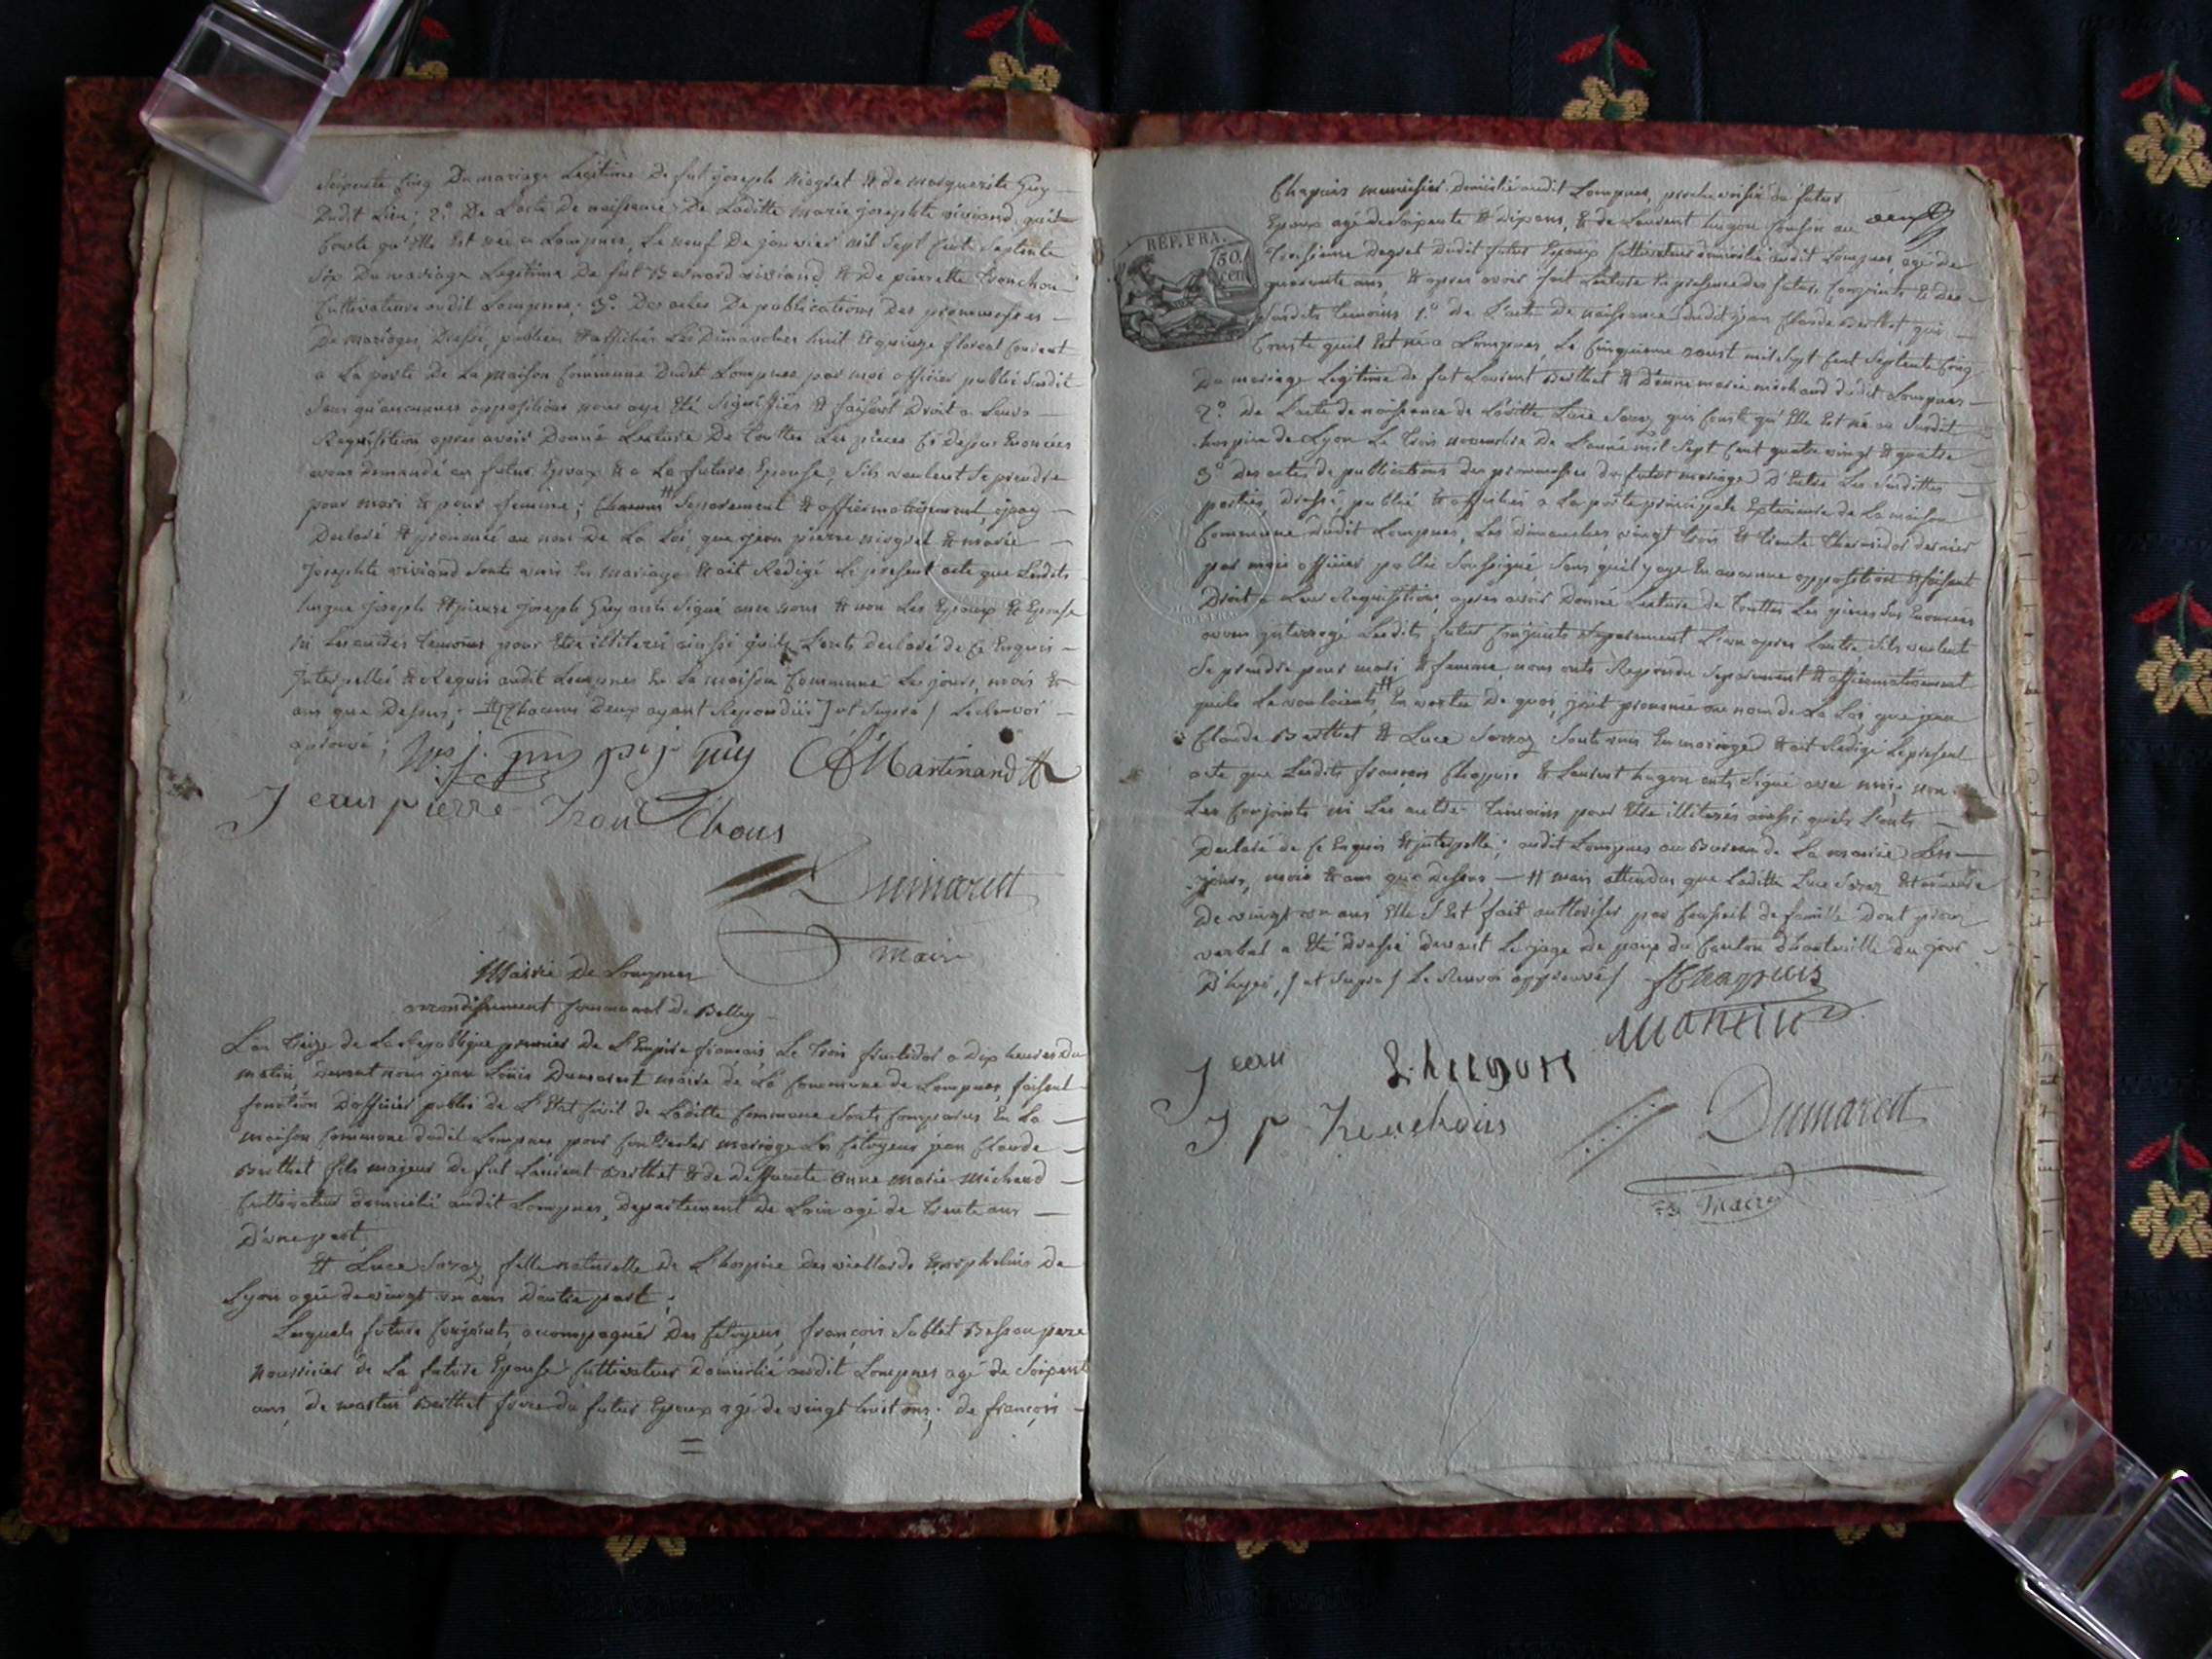 Soixante Cinq Du mariage Legitime De fut joseph niogret & de marguerite Guy
Dudit Lieu; 2.° De L'acte De naissance De Laditte marie josephte viviand qui
Conste qu'Elle Est née a Lompnes, Le neuf De janvier mil Sept Cent Septente
Six Du mariage Legitime De fut Bernard viviand & De pierrette Tronchon
Cultivateurs audit Lompnes; 3.° Des actes De publications Des promesses
De mariages, Dressé, publiés & affichés Les Dimanches huit & quinze floreal Courent
a La porte De La maison Commune Dudit Lompnes par moi officier public Susdit
Sans qu'aucunes oppositions nous aye Eté Signiffiés & faisant Droit a Leurs
Requisition, apres avoir Donné Lecture De Touttes Les pieces Ci Dessus Enoncées
avons demandé au futur Epoux & a La future Epouse, Sils veulent Se prendre
pour mari & pour femme; Separement & affirmativement, jpay
Declaré & prononcé au nom De La Loi que jean pierre niogret & marie
Josephte viviand Sonts unis En mariage & ait Redigé Le present acte que Lesdits
hugue joseph & pierre joseph Guy onts Signé avec nous & non Les Epoux & Epouse
ni Les autres Temoins pour Etre illiterés ainsi quils Lonts declaré de Ce Enquis
Interpellés & Requis audit Lompnes En La maison Commune Les jours, mois &
ans que Dessus; #[Chacuns Deux ayant Repondu] ut Supra / Le Renvoi
aprouvé; p j Guy Martinand
Jean pierre Tronchons
Dumarest
Maire
Mairie De Lompnes
arrondissement Communal de Belley
L'an Treize de La Republique premier de L'Empire francais Le Trois fructidor a Dix heures du
matin, Devant nous jean Louis Dumarest maire de La Commune de Lompnes, faisant
fonction D'officier public de L'Etat Civil de Laditte Commune Sonts Comparus En La
maison Commune dudit Lompnes pour Contracter mariage Le Citoyen jean Claude
Berthet fils majeur de fut Laurent Berthet & de deffuncte anne marie michaud
Cultivateur domicilié audit Lompnes, Departement de Lain agé de Trente ans
D'une part
& Luce Savoz fille naturelle de L'hospice des viellards & orphelins De
Lyon agée de vingt un ans D'autre part;
Lesquels futurs Conjoints, acompagnés Des Citoyens, françois Sablet Bessau pere
nourricier de La future Epouse Cultivateur Domicilié audit Lompnes agé de Soixent
ans, de martin Berthet frere du futur Epoux agé de vingt huit ans, de françois
Chapuis menuisier Domicilié audit Lompnes, proche voisin du futur
Epoux agé de Soixente & Dix ans, & de Laurent hugon Cousin au
Troisieme Degret Dudit futur Epoux Cultivateur domicilié audit Lompnes, agé de
REP. FRA.
50 cen
quarante ans, & apres avoir fait Lecture En presence des futurs Conjoints & Des
Susdits Temoins 1.° de L'acte De naissance dudit jean Claude Berthet, qui
Conste quil Est né a Lompnes, Le Cinquieme aoust mil Sept Cent Septente Cinq
Du mariage Legitime de fut Laurent Berthet & D'anne marie michaud dudit Lompnes
2.° De L'acte de naissance de Laditte Luce Savoz qui Conste qu'Elle Est né au Susdit
hospice de Lyon Le Trois novembre De L'année mil Sept Cent quatre vingt & quatre
3.° Des actes de publications des promesses du futur mariage D'Entre Les Susdittes
parties, Dressé, publié & affichés a La porte principale Exterieure de La maison
Commune Dudit Lompnes, Les Dimanches vingt Trois & Trente Thermidor dernier
par moi officier public Soussigné, Sans quil y aye En aucunne opposition & faisant
Droit a Leur Requisition, apres avoir Donné Lecture de Touttes Les pieces Sus Enoncés
avons interrogé Lesdits futur Conjoints Separement L'un apres Lautre Sils veulent
Se prendre pour mari & femme, nous onts Repondu Separement & affirmativement
quils Le vouloients # En vertu De quoi, j'ait prononcé au nom de La Loi que jean
Claude Berthet & Luce Savoz Sonts unis En mariage & ait Redigé Le present
acte que Lesdits françois Chapuis & Laurent hugon onts Signé avec moi; non
Les Conjoints ni Les autres Temoins pour Etre illiterés ainsi quils L'onts
Declaré de Ce Enquis & jnterpellé; audit Lompnes au Bureau de La mairie Les
jours, mois & ans que Dessus # mais attendu que Laditte Luce Savoz Est mineure
De vingt un ans Elle S'Est fait authoriser par Conseil de famille Dont proces
verbal a Eté Dressé devant Le juge de paix du Canton d'hauteville du jour
D'hyer, / ut Supra / Le Renvoi approuvé / f Chapuis
Martin
Jean
L. hugon
J p Tronchons
Dumarest
Maire